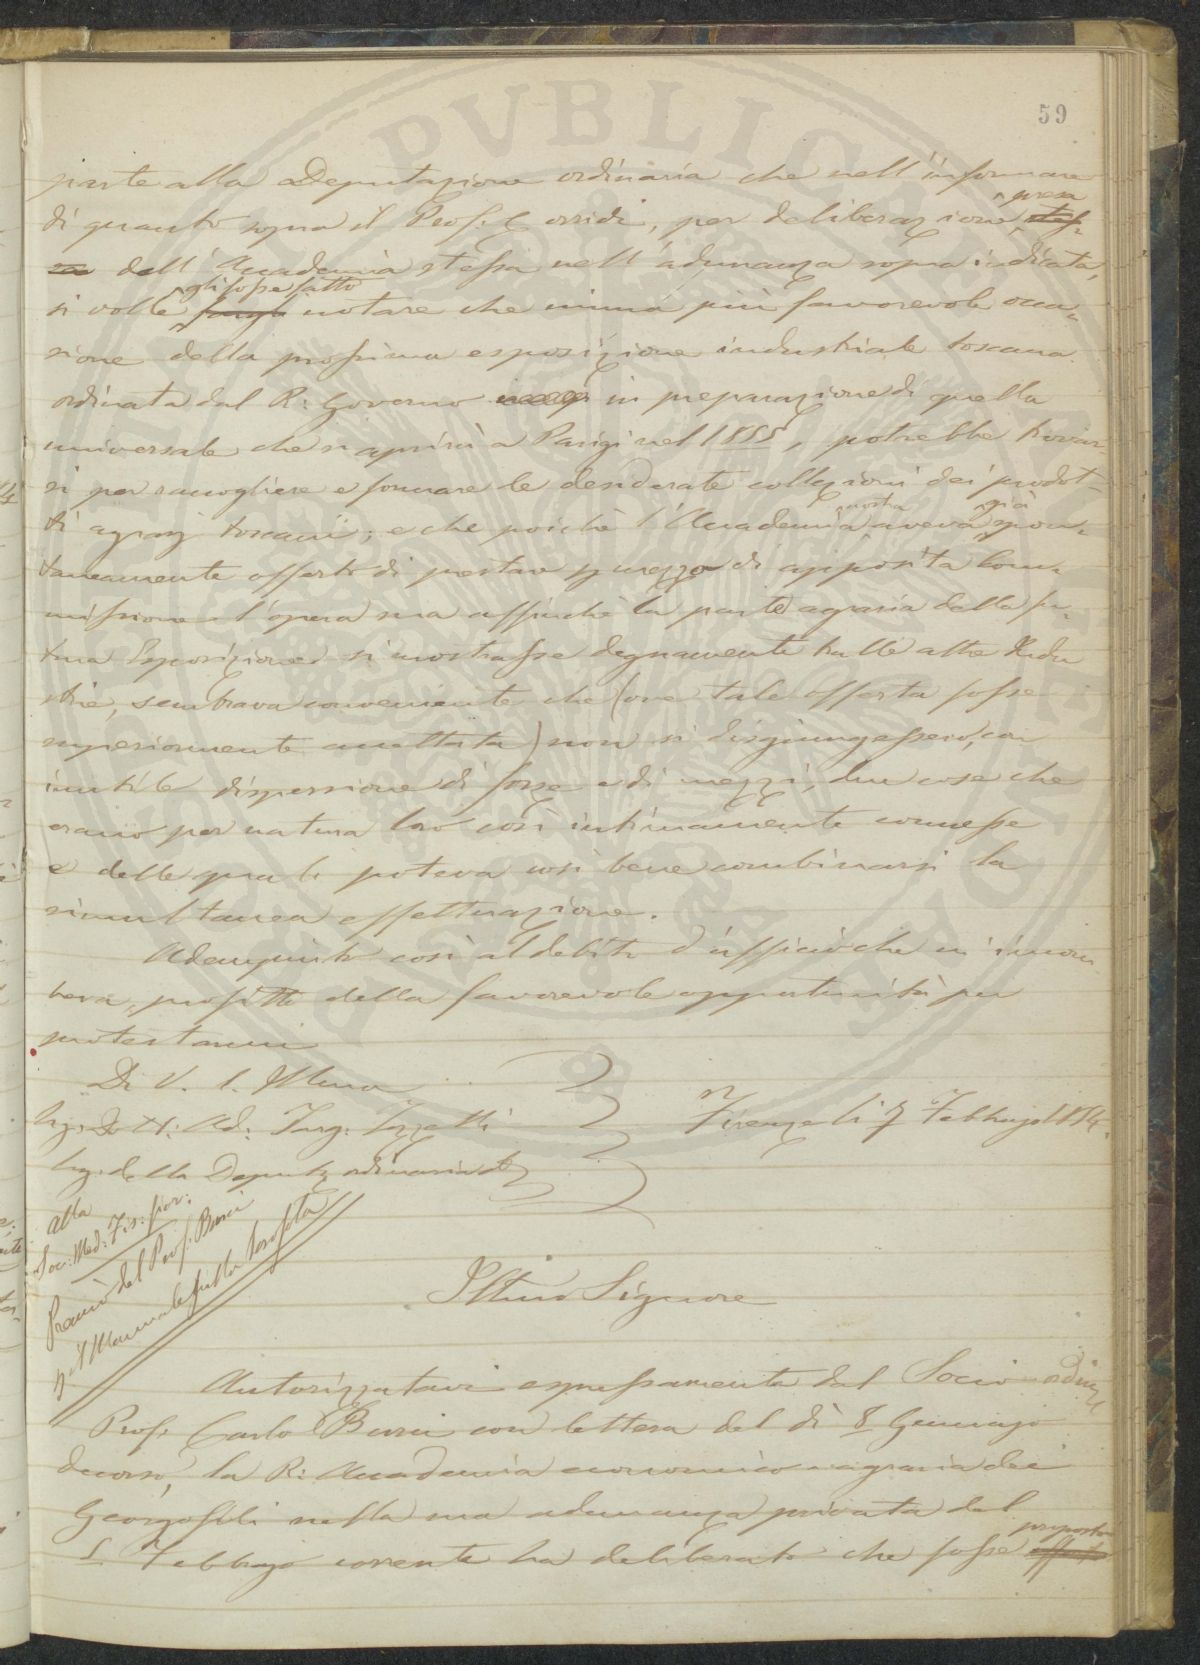 59
parte alla Deputazione ordinaria che nell'informare
di quanto sopra il Prof. Corridi, per deliberazione presa
dell'Accademia stessa nell'adunanza sopra indicata,
si volle gli fosse fatto notare che niuna più favorevole occa-
sione della prossima esposizione industriale toscana
ordinata dal R: Governo in preparazione di quella
universale che si aprirà a Parigi nel 1855, potrebbe trovar-
si per raccogliere e formare le desiderate collezioni dei prodot-
ti agrarj toscani; e che poichè l'Accademia nostra aveva già spon-
taneamente offerto di prestare p mezzo di apposita Com-
missione l'opera sua affinchè la parte agraria della fu-
tura Esposizione si mostrasse degnamente tralle altre Indu
strie, sembrava conveniente che (ove tale offerta fosse
superiormente accettata) non si disgiungessero, con
inutile dispersione di forze e di mezzi, due cose che
erano per natura loro così intimamente connesse
e delle quali poteva così bene combinarsi la
simultanea effettuazione.
Adempiuto così al debito d'ufficio che m'incom
beva, profitto della favorevole opportunità per
protestarmi
Di V. S. Illma
Firenze li 7 Febbrajo 1854.
Sig: D: H: Ad: Targ: Tozzetti
Seg: della Deputaz ordinaria
alla
Soc: Med: Fis: fior:
Premio del Prof: Burci
p il Manuale sulla Scrofola
Illmo Signore
Autorizzatavi espressamente dal Socio ordin
Prof: Carlo Burci con lettera del dì 8 Gennajo
decorso, la R: Accademia economico-agraria dei
Georgofili nella sua adunanza privata del
5 Febbrajo corrente ha deliberato che fosse proposto